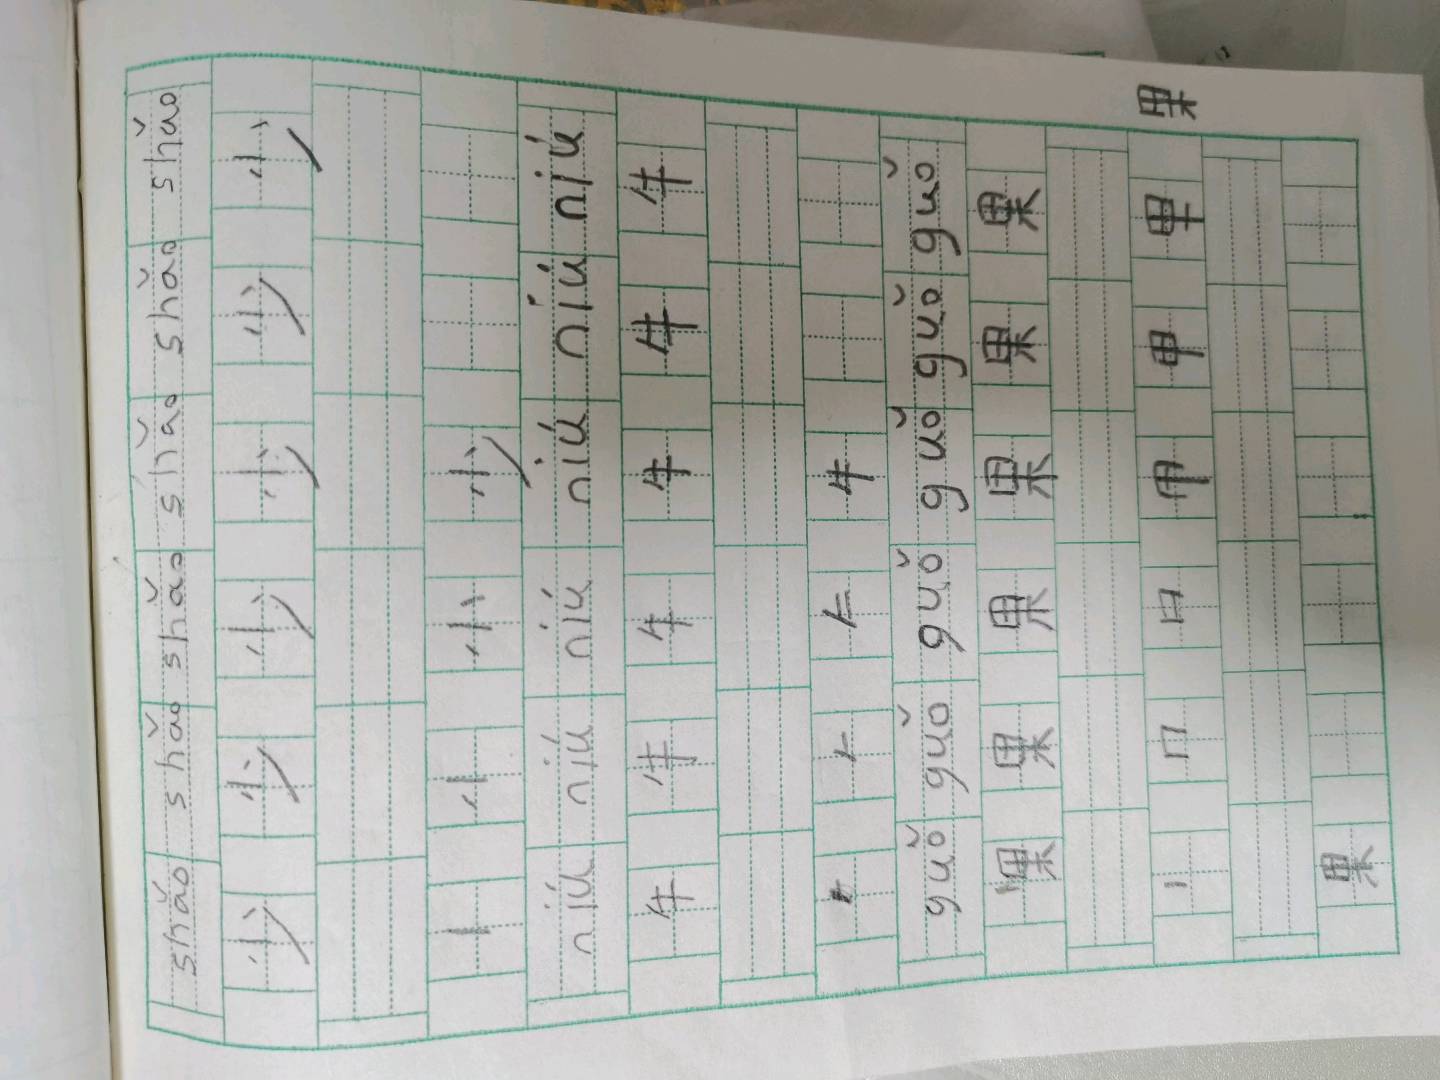 shǎo shǎo shǎo shǎo shǎo shǎo
少 少 少 少 少 少
丨 小 少
niú niú niú niú niú niú
牛 牛 牛 牛 牛 牛
丿 𠂉 牛
guǒ guǒ guǒ guǒ guǒ guǒ
果 果 果 果 果 果
丨 冂 日 甲 果
果